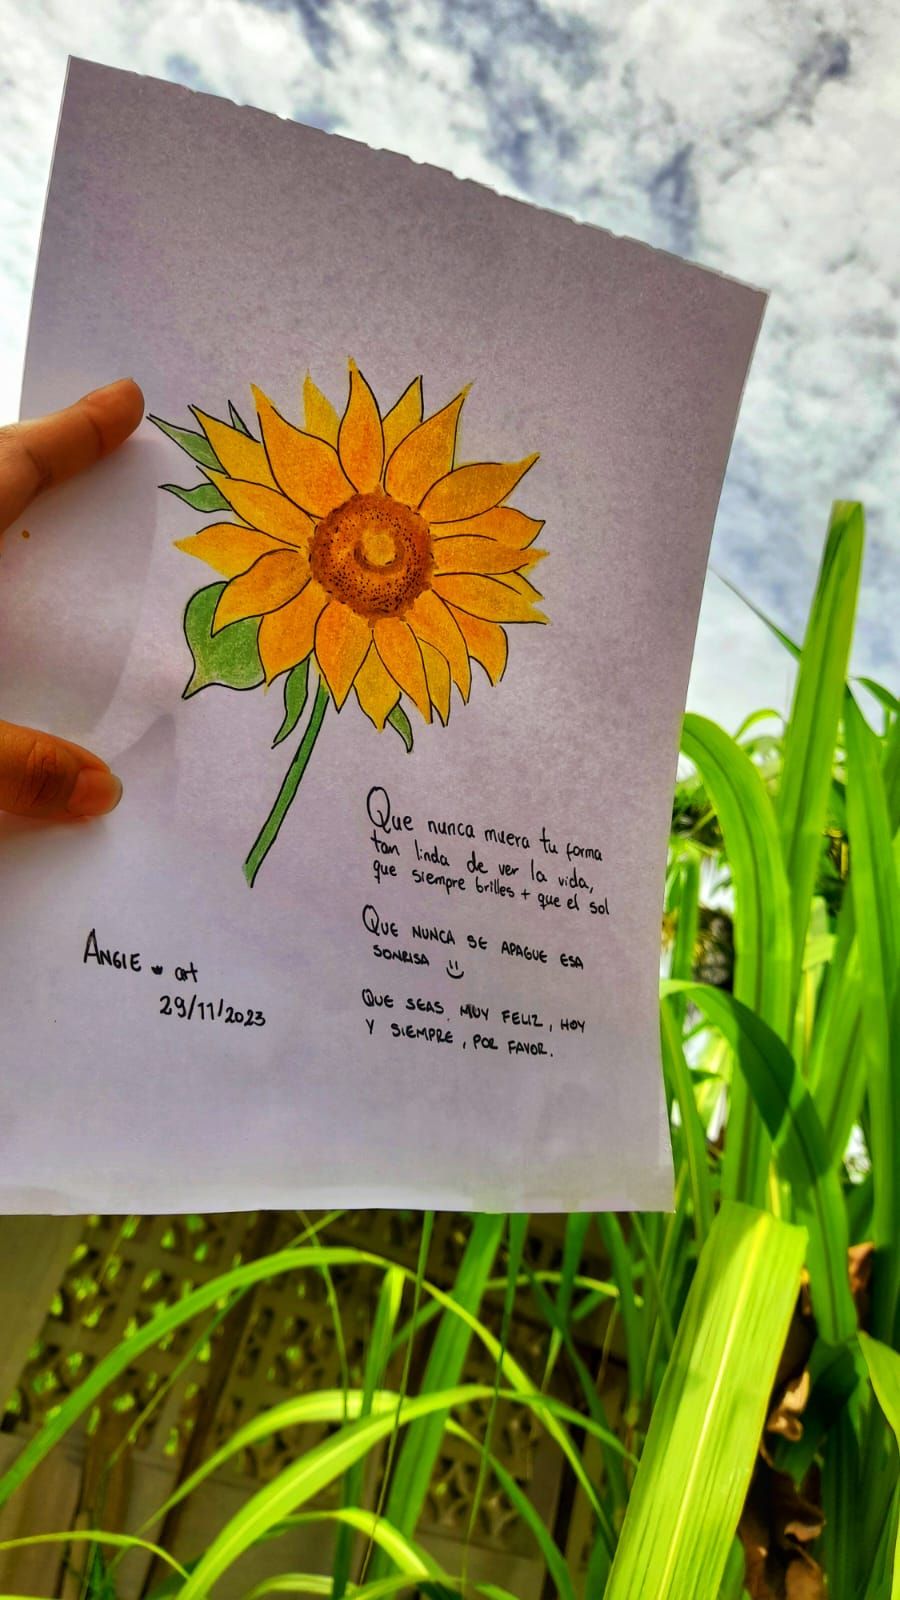 Que nunca muera tu forma
tan linda de ver la vida,
que siempre brilles + que el sol
QUE NUNCA SE APAGUE ESA
SONRISA
QUE SEAS MUY FELIZ, HOY
Y SIEMPRE, POR FAVOR.
ANGIE art
29/11/2023